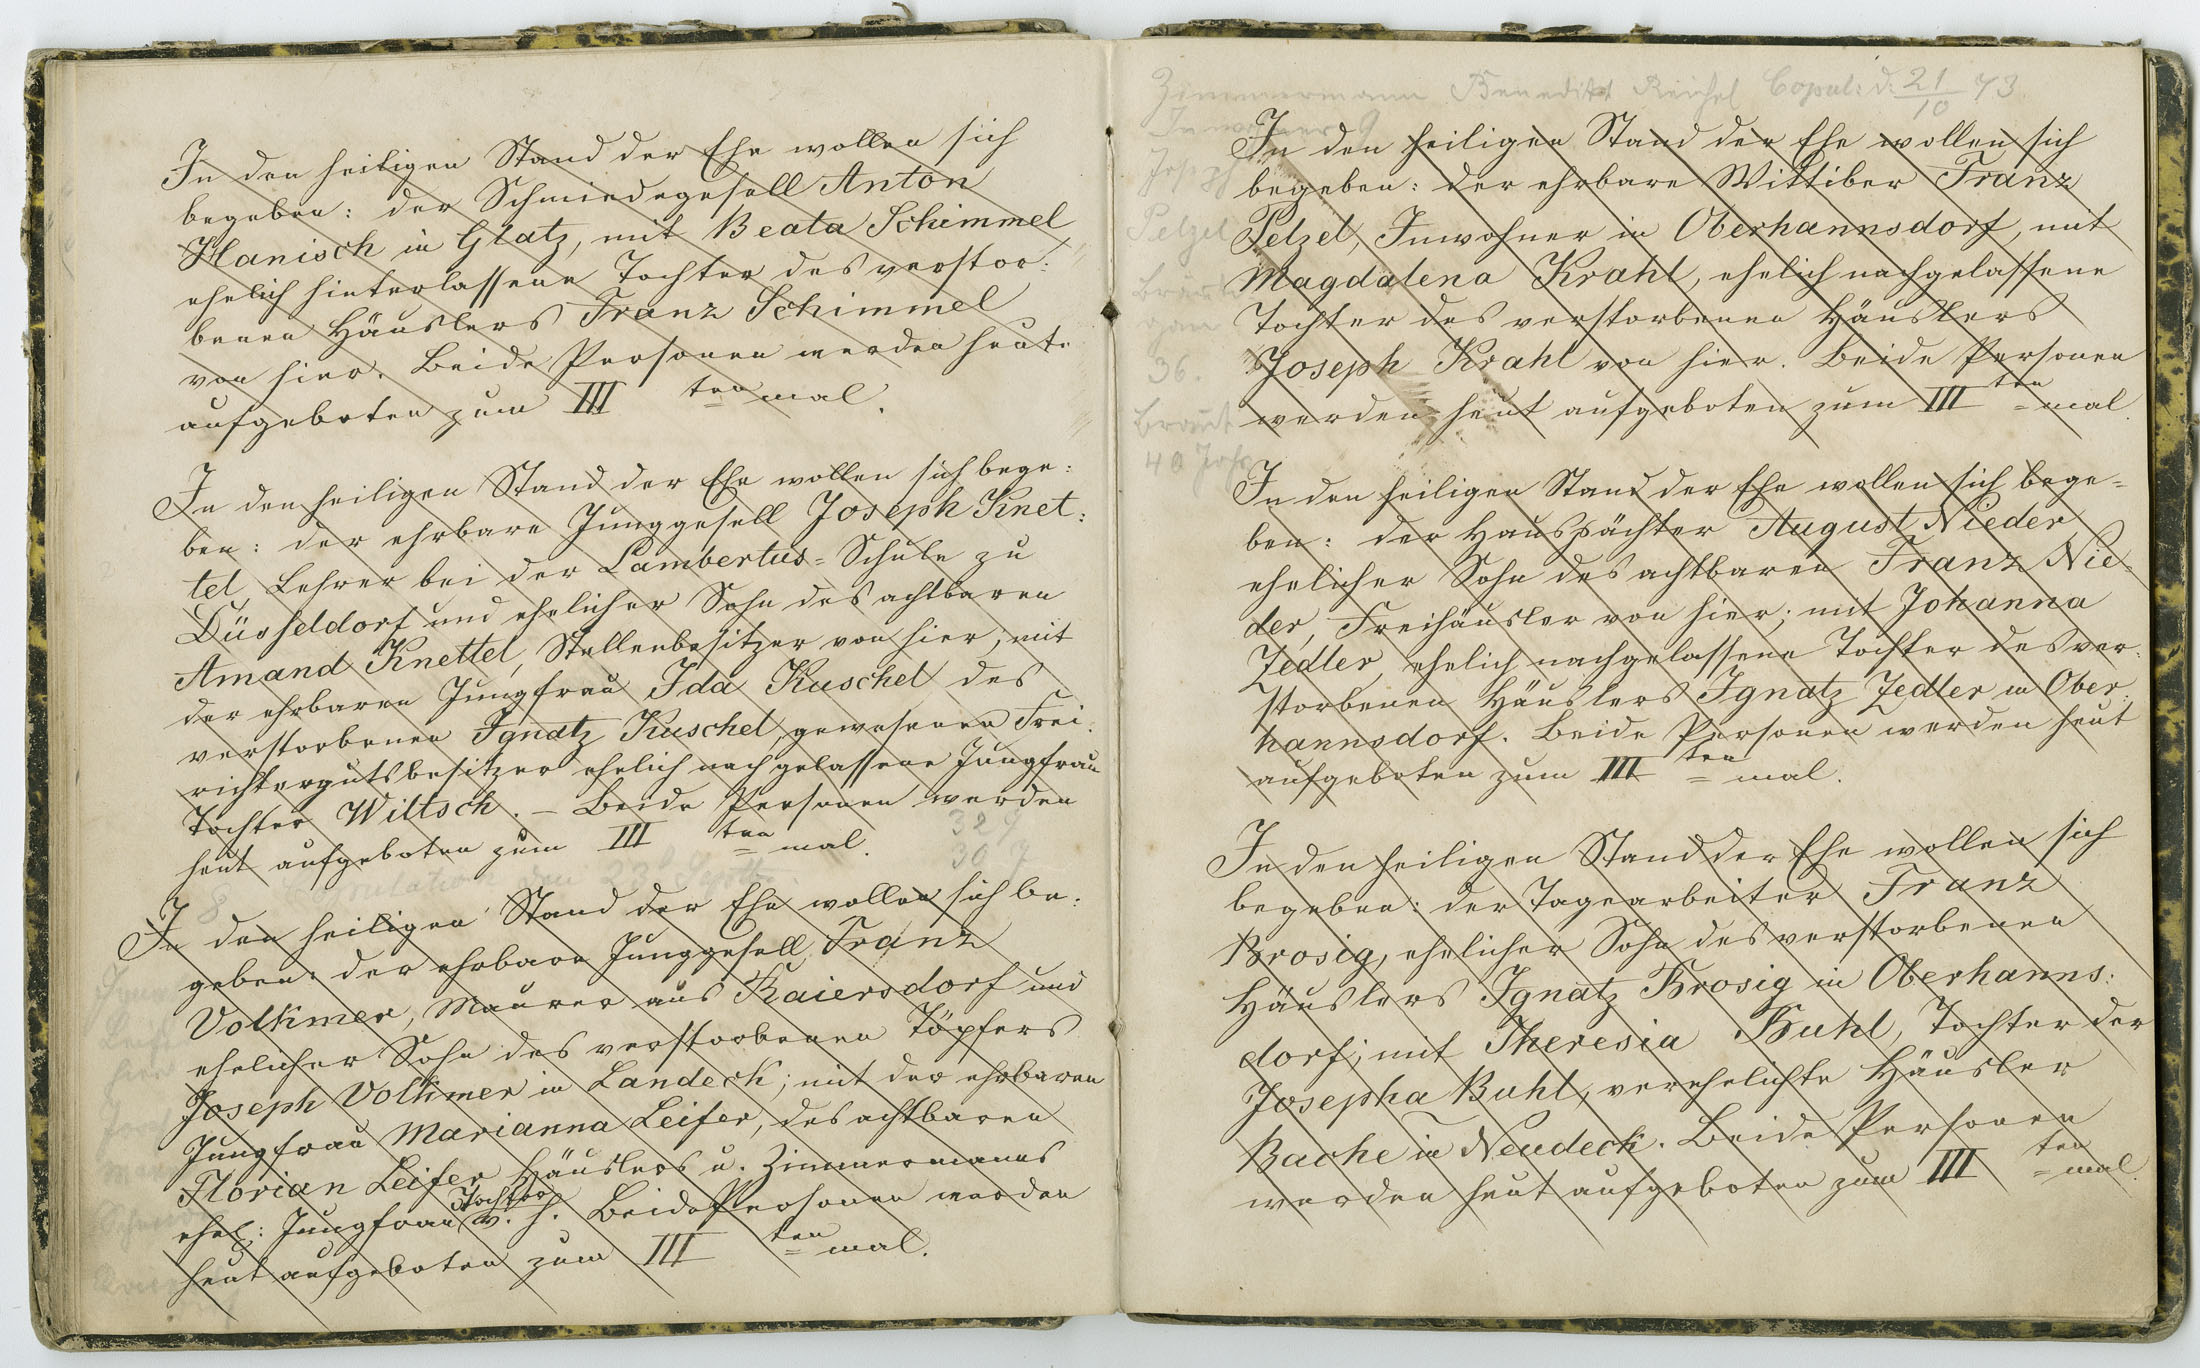 In den heiligen Stand der Ehe wollen sich
begeben: der Schmiedegesell Anton
Hanisch in Glatz, mit Beata Schimmel
ehelich hinterlassene Tochter des verstor:
benen Häuslers Franz Schimmel
von hier. Beide Personen werden heute
aufgeboten zum III ten mal.
In den heiligen Stand der Ehe wollen sich bege:
ben: der ehrbare Junggesell Joseph Knet:
tel, Lehrer bei der Lambertus-Schule zu
Düsseldorf und ehelicher Sohn des achtbaren
Amand Knettel, Stellenbesitzer von hier, mit
der ehrbaren Jungfrau Ida Kuschel des
verstorbenen Ignatz Kuschel, gewesenen Frei:
richtergutsbesitzer ehelich nachgelassene Jungfrau
Tochter Wiltsch. – Beide Personen werden
heut aufgeboten zum III ten mal.
32 J
30 J
8 Copulation den 23t Septbr.
In den heiligen Stand der Ehe wollen sich be:
geben: der ehrbare Junggesell Franz
Volkmer, Maurer aus Kaiersdorf und
ehelicher Sohn des verstorbenen Töpfers
Joseph Volkmer in Landeck; mit der ehrbaren
Jungfrau Marianna Leifer, des achtbaren
Florian Leifer Häuslers u. Zimmermanns
ehel: Jungfrau Tochter v. h. Beide Personen werden
heut aufgeboten zum III ten mal.
Zimmermann Benedikt Reichel Copul: d: 21/10 73
Inwohner
Joseph
Pelzel
36.
Braut
40 Jahr
In den heiligen Stand der Ehe wollen sich
begeben: der ehrbare Wittiber Franz
Pelzel, Inwohner in Oberhannsdorf, mit
Magdalena Krahl, ehelich nachgelassene
Tochter des verstorbenen Häuslers
Joseph Krahl von hier. Beide Personen
werden heut aufgeboten zum III ten mal.
In den heiligen Stand der Ehe wollen sich bege-
ben: der Hauspächter August Nieder
ehelicher Sohn des achtbaren Franz Nie-
der, Freihäusler von hier; mit Johanna
Zedler, ehelich nachgelassene Tochter des ver:
storbenen Häuslers Ignatz Zedler in Ober:
hannsdorf. Beide Personen werden heut
aufgeboten zum III ten mal.
In den heiligen Stand der Ehe wollen sich
begeben: der Tagearbeiter Franz
Brosig, ehelicher Sohn des verstorbenen
Häuslers Ignatz Brosig in Oberhanns:
dorf; mit Theresia Buhl, Tochter der
Josepha Buhl, verehelichte Häusler
Bache in Neudeck. Beide Personen
werden heut aufgeboten zum III ten mal.